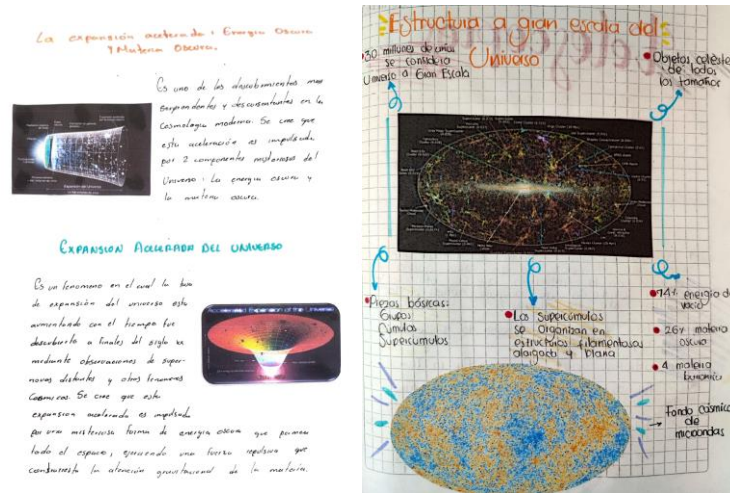 La expansión acelerada: Energía Oscura
Y Materia Oscura.
Es uno de los descubrimientos mas
sorprendentes y desconsertantes en la
Cosmología moderna. Se cree que
esta aceleración es impulsada
por 2 componentes misteriosos del
Universo: La energía oscura y
la materia oscura.
EXPANSION ACELERADA DEL UNIVERSO
Es un fenomeno en el cual la tasa
de expansión del universo esta
aumentando con el tiempo fue
descubierto a finales del siglo XX
mediante observaciones de super-
novas distantes y otros fenomenos
Cosmicos. Se cree que esta
expansion acelerada es impulsada
por una misteriosa forma de energía oscura que
todo el espacio, ejerciendo una fuerza repulsiva que
contrarresta la atención gravitacional de la materia.
Accelerated Expansion of the Universe
Estructura a gran escala del
Universo
30 millones de
se considera
Universo a Gran Escala
Objetos celeste
de todos
los tamaños
Piezas básicas:
Grupos
Cúmulos
Supercúmulos
Los Supercúmulos
se organizan en
estructuras filamentosas
alargada y plana
74% energía de
vacío
26% materia
oscura
4 materia
Fondo cósmico
de
microondas